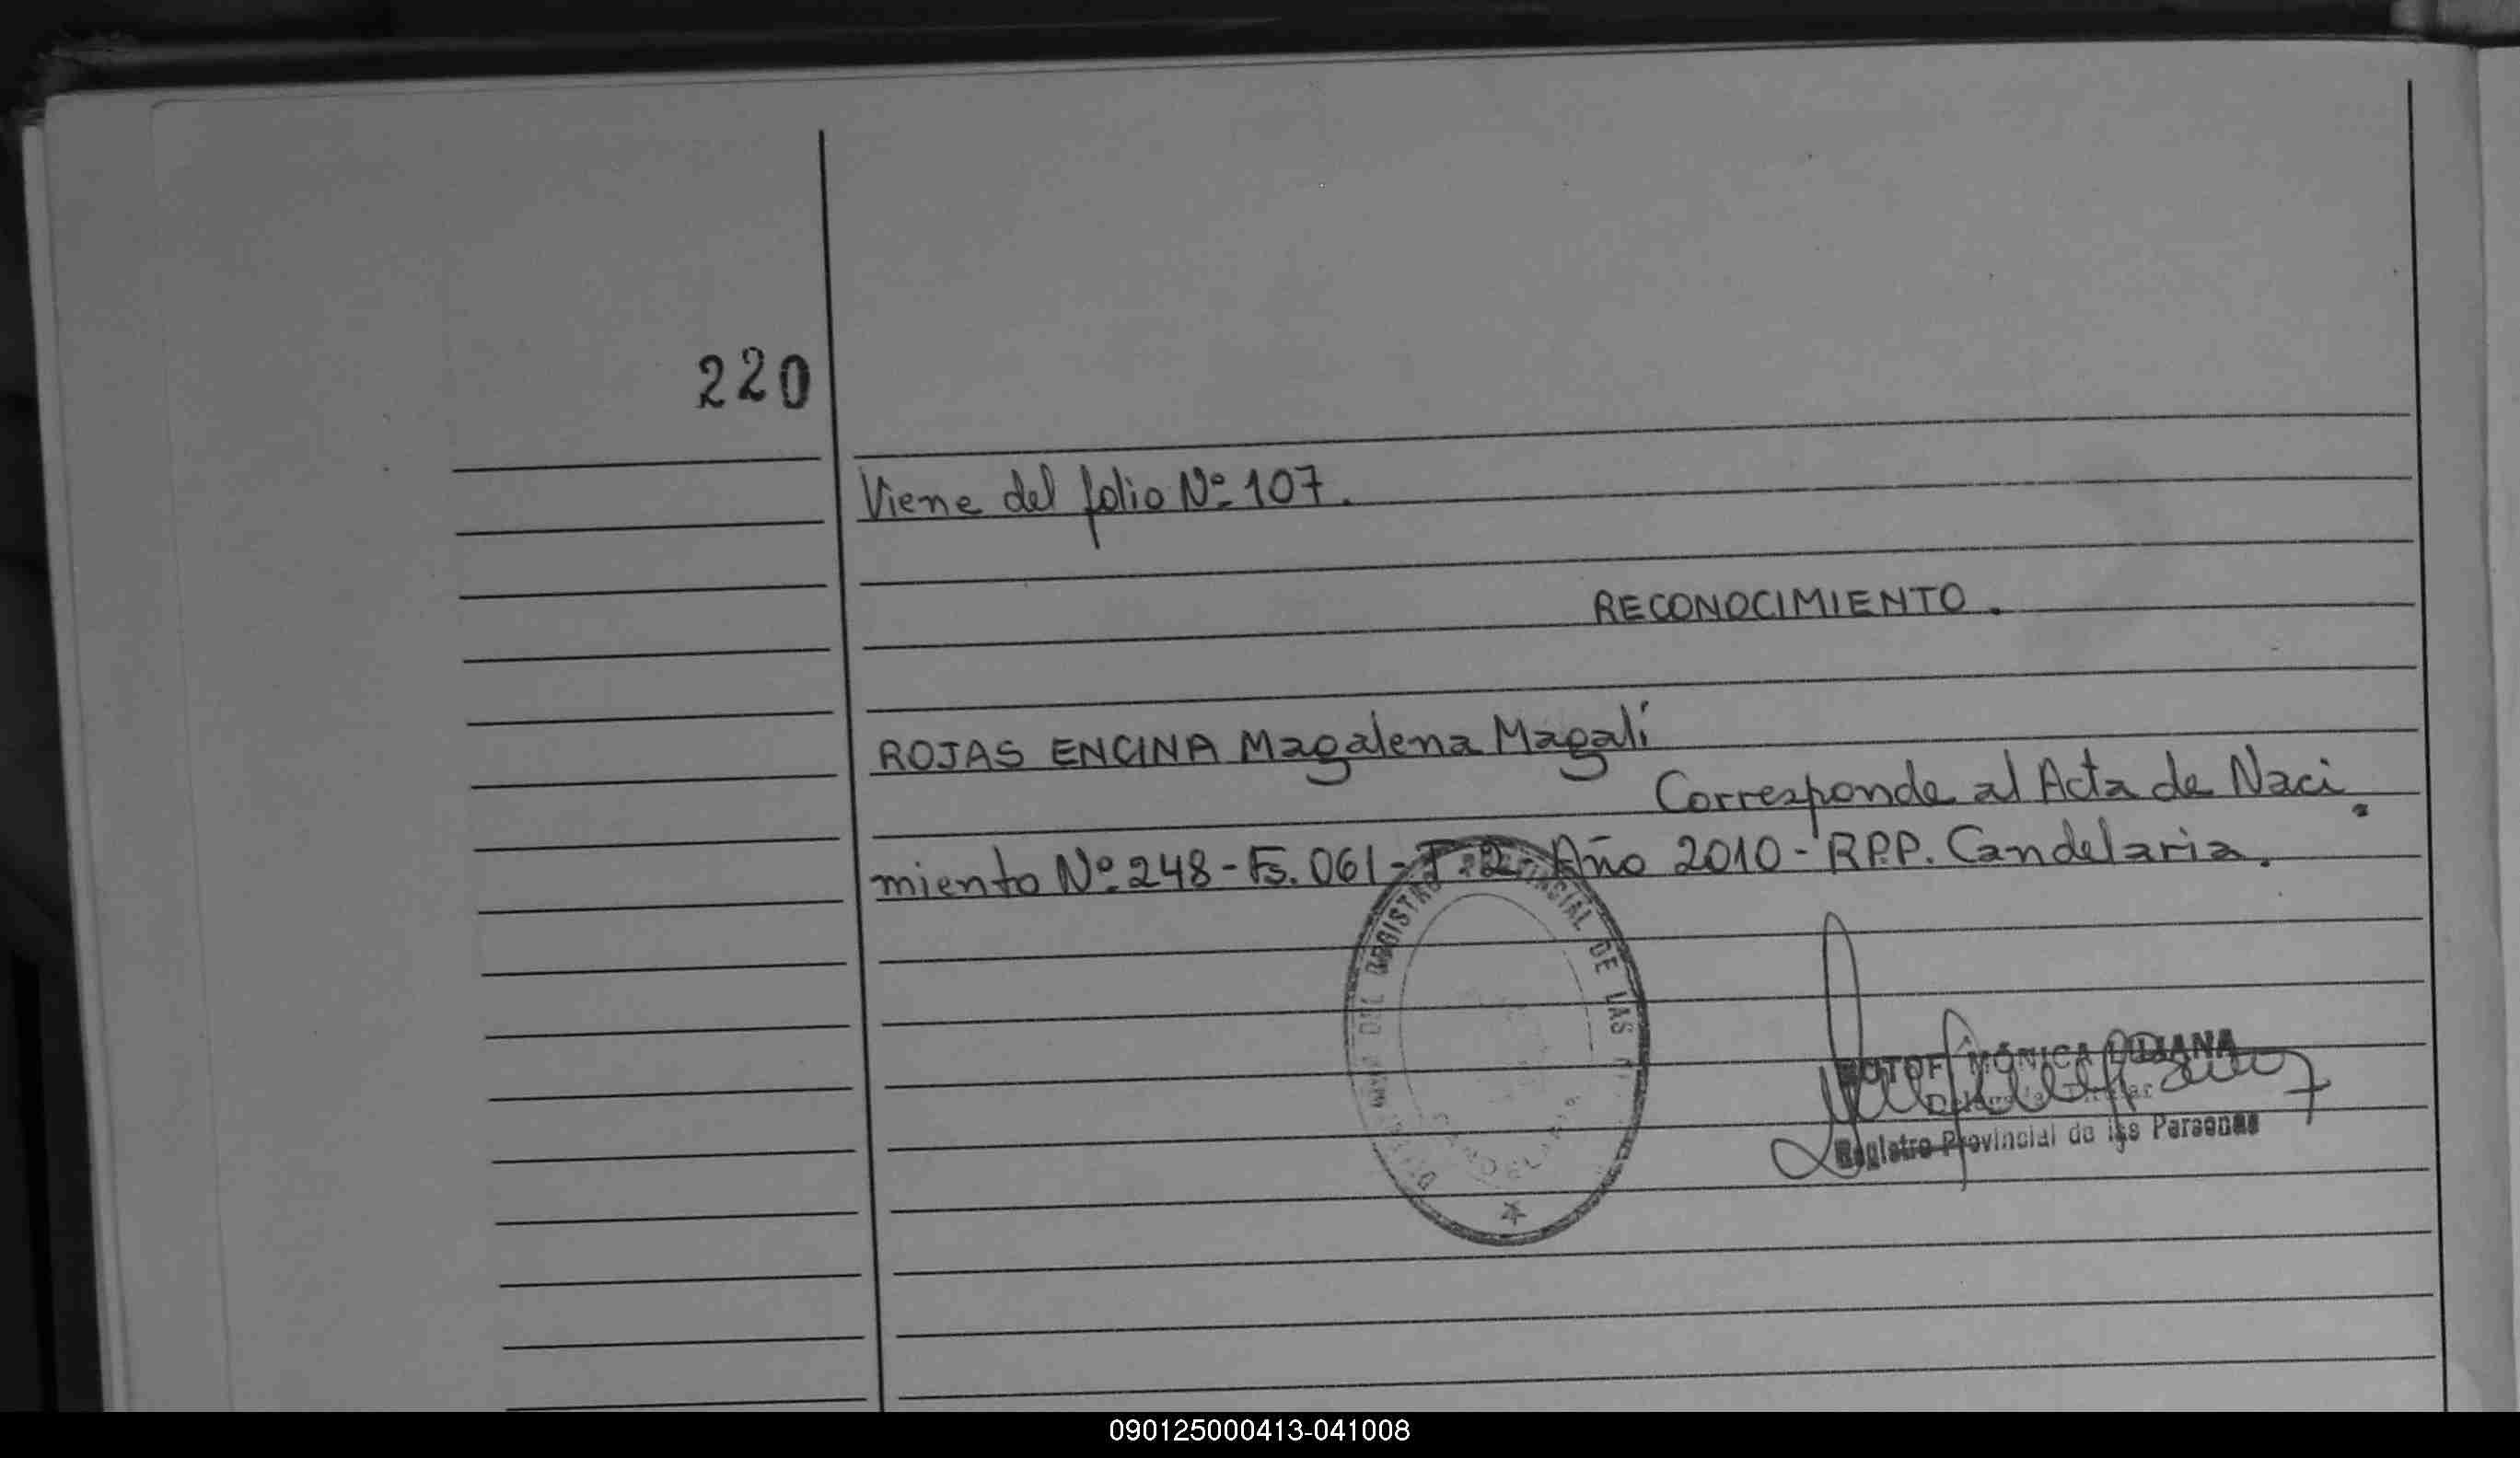 220
Viene del folio Nº 107.
RECONOCIMIENTO.
ROJAS ENCINA Magalena Magalí
Corresponde al Acta de Naci
miento Nº 248 - Fs. 061 - T. 2 - Año 2010 - R.P.P. Candelaria.
DEL REGISTRO PROVINCIAL DE LAS
MÓNICA
Registro Provincial de las Personas
090125000413-041008